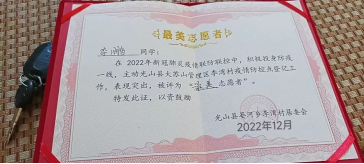 最美志愿者
同学：
在2022年新冠肺炎疫情联防联控中，积极投身防疫
一线，主动光山县大苏山管理区李湾村疫情防控点登记工
作。表现突出，被评为“最美志愿者”。
特发此证，以资鼓励
光山县晏河乡李湾村居委会
2022年12月